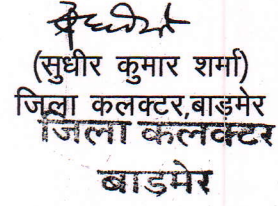 (सुधीर कुमार शर्मा)
जिला कलक्टर,बाड़मेर
जिला कलक्टर
बाड़मेर